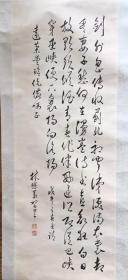 劍外忽傳收薊北初聞涕淚滿衣裳
卻看妻子愁何在漫卷詩書喜欲狂白日
放歌須縱酒青春作伴好還鄉即從巴峽
穿巫峽便下襄陽向洛陽